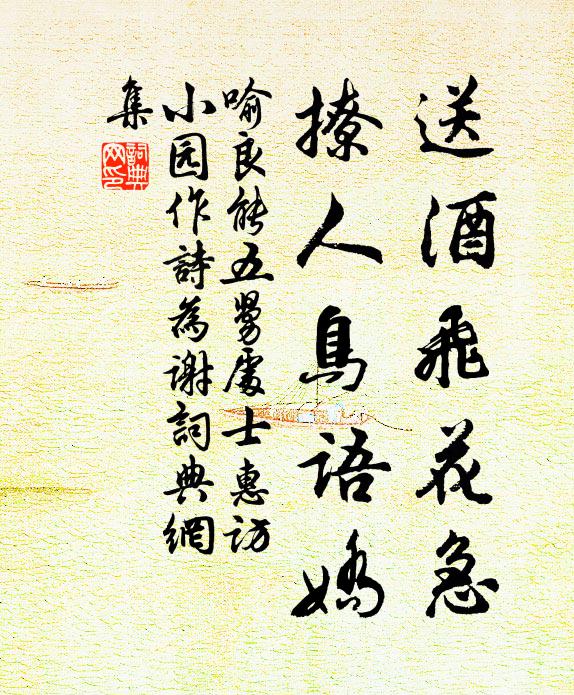 送酒飛花急
撩人鳥語嬌
喻良能五舅處士惠訪
小园作詩為謝詞典網
集
詞典網印